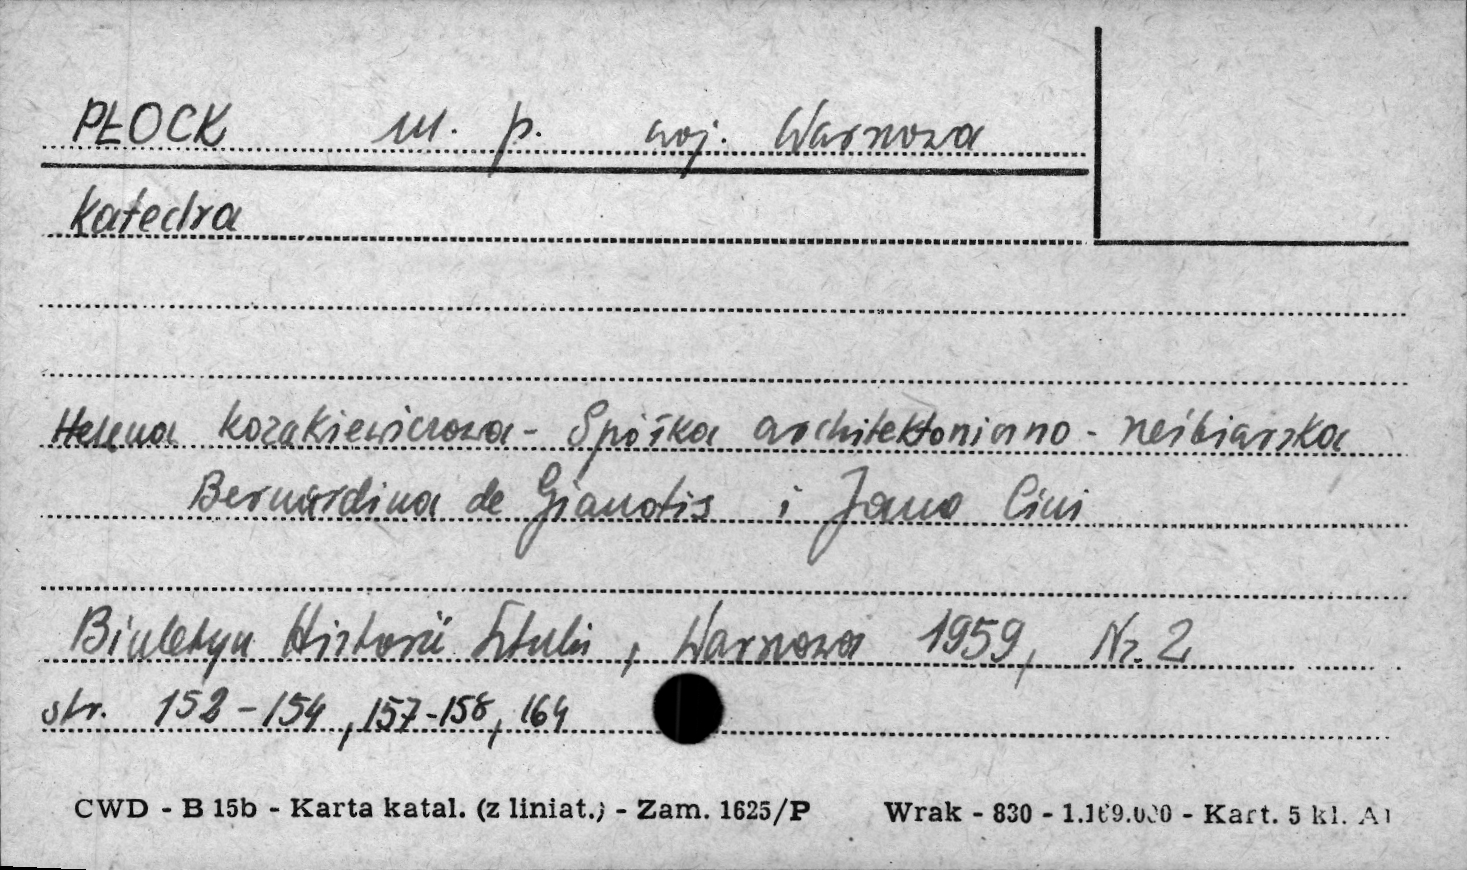 PŁOCK m. p. woj. Warszawa
Katedra
Helena Kozakiewiczowa - Spółka architektoniczno - rzeźbiarska
Bernardina de Gianotis i Jana Cini
Biuletyn Historii Sztuki, Warszawa 1959, Nr. 2
str. 152-154, 157-158, 164
CWD - B 15b - Karta katal. (z liniat.) - Zam. 1625/P Wrak - 830 - 1.169.000 - Kart. 5 kl. A1